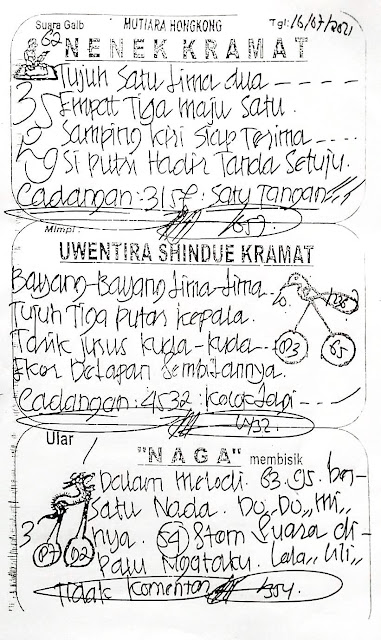 Suara Gaib MUTIARA HONGKONG Tgl: 16/07/2021
62 NENEK KRAMAT
Tujuh Satu Lima dua
35 Empat Tiga maju Satu.
Samping kiri Siap Terima
Si Putri Hadir Tanda Setuju.
Cadangan: 315
Mimpi
UWENTIRA SHINDUE KRAMAT
Bayang-Bayang Lima-Lima
Tujuh Tiga Putar kepala.
Tarik Lurus kuda-kuda 93 65
Ekor Delapan Sembilannya.
Cadangan: 4532:
Ular
"NAGA" membisik
Dalam melodi 63.95. ber-
Satu Nada. Do,, Do,, mi,,
nya. 54 Stom Suara di-
97 92 Lala,, Lili,,
Tidak Komentar